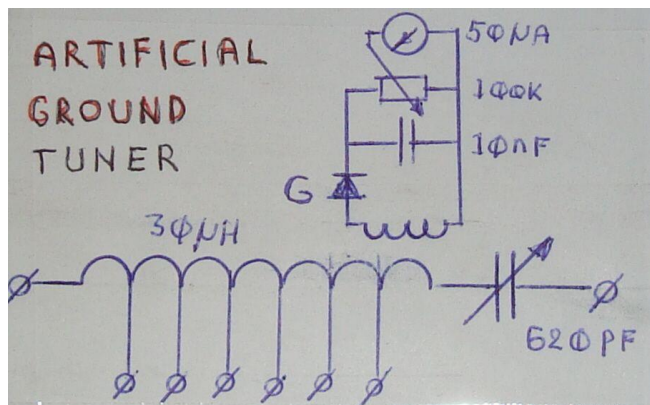 ARTIFICIAL
GROUND
TUNER
50µA
100K
10nF
G
30µH
620PF